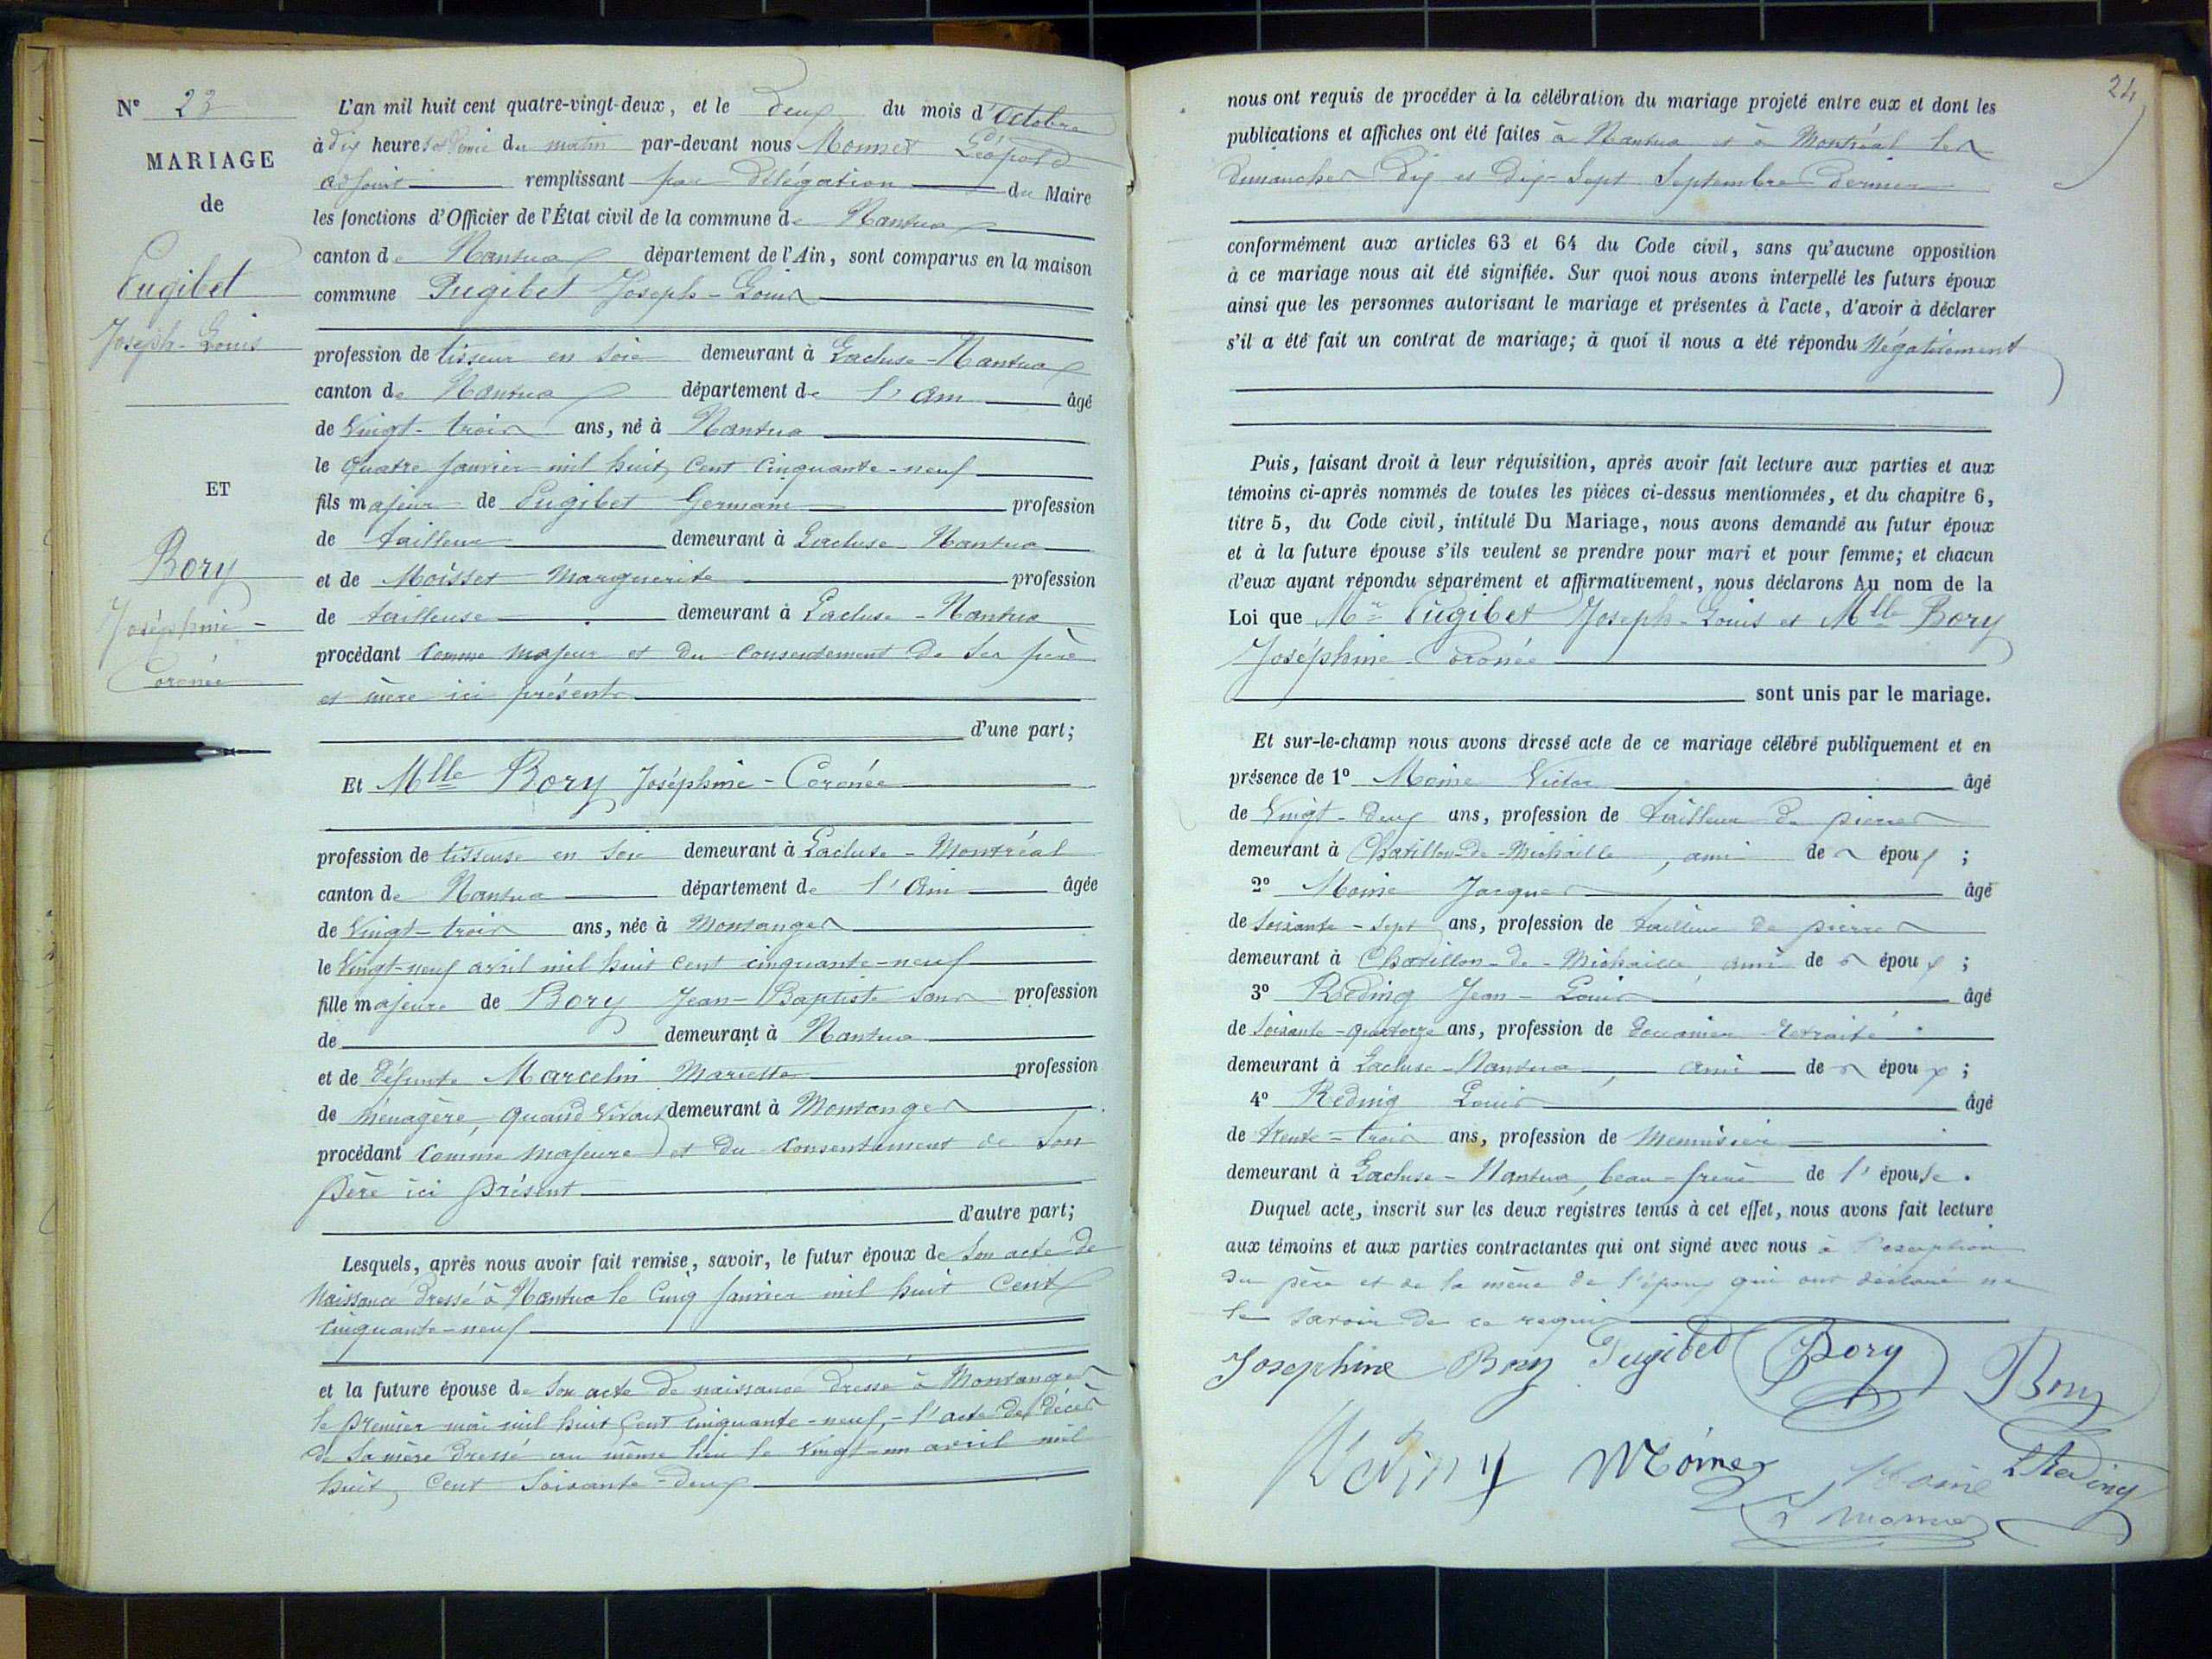 N° 23
MARIAGE
de
Pugibet
Joseph-Louis
ET
Bory
Joséphine-
Coronée
L'an mil huit cent quatre-vingt-deux, et le deux du mois d'Octobre
à dix heures et demie du matin par-devant nous Monnet Léopold
adjoint remplissant par délégation du Maire
les fonctions d'Officier de l'État civil de la commune de Nantua
canton de Nantua département de l'Ain, sont comparus en la maison
commune Pugibet Joseph-Louis
profession de tisseur en soie demeurant à Lacluse-Nantua
canton de Nantua département de l'Ain âgé
de Vingt-trois ans, né à Nantua
le Quatre Janvier mil huit cent cinquante-neuf
fils majeur de Pugibet Germain profession
de tailleur demeurant à Lacluse-Nantua
et de Moisset Marguerite profession
de tailleuse demeurant à Lacluse-Nantua
procédant comme majeur et du consentement de ses père
et mère ici présents
d'une part;
Et Mlle Bory Joséphine-Coronée
profession de tisseuse en soie demeurant à Lacluse-Montréal
canton de Nantua département de l'Ain âgée
de Vingt-trois ans, née à Montanges
le Vingt-neuf avril mil huit cent cinquante-neuf
fille majeure de Bory Jean-Baptiste sans profession
de demeurant à Nantua
et de défunte Marcelin Mariette profession
de ménagère, quand vivait demeurant à Montanges
procédant comme majeure et du consentement de son
père ici présent
d'autre part;
Lesquels, après nous avoir fait remise, savoir, le futur époux de son acte de
naissance dressé à Nantua le cinq Janvier mil huit cent
cinquante-neuf
et la future épouse de son acte de naissance dressé à Montanges
le premier mai mil huit cent cinquante-neuf,- l'acte de décès
de sa mère dressé au même lieu le vingt-un avril mil
huit cent soixante-deux
24
nous ont requis de procéder à la célébration du mariage projeté entre eux et dont les
publications et affiches ont été faites à Nantua et à Montréal les
dimanches dix et dix-sept Septembre dernier
conformément aux articles 63 et 64 du Code civil, sans qu'aucune opposition
à ce mariage nous ait été signifiée. Sur quoi nous avons interpellé les futurs époux
ainsi que les personnes autorisant le mariage et présentes à l'acte, d'avoir à déclarer
s'il a été fait un contrat de mariage; à quoi il nous a été répondu Négativement
Puis, faisant droit à leur réquisition, après avoir fait lecture aux parties et aux
témoins ci-après nommés de toutes les pièces ci-dessus mentionnées, et du chapitre 6,
titre 5, du Code civil, intitulé Du Mariage, nous avons demandé au futur époux
et à la future épouse s'ils veulent se prendre pour mari et pour femme; et chacun
d'eux ayant répondu séparément et affirmativement, nous déclarons Au nom de la
Loi que Mr Pugibet Joseph-Louis et Mlle Bory
Joséphine-Coronée
sont unis par le mariage.
Et sur-le-champ nous avons dressé acte de ce mariage célébré publiquement et en
présence de 1° Moine Victor âgé
de Vingt-deux ans, profession de tailleur de pierres
demeurant à Chatillon-de-Michaille, ami des époux ;
2° Moine Jacques âgé
de soixante-sept ans, profession de tailleur de pierres
demeurant à Chatillon-de-Michaille, ami des époux ;
3° Reding Jean-Louis âgé
de soixante-quatorze ans, profession de douanier retraité
demeurant à Lacluse-Nantua, ami des époux ;
4° Reding Louis âgé
de trente-trois ans, profession de Menuisier
demeurant à Lacluse-Nantua, beau-frère de l'épouse.
Duquel acte, inscrit sur les deux registres tenus à cet effet, nous avons fait lecture
aux témoins et aux parties contractantes qui ont signé avec nous à l'exception
du père et de la mère de l'époux qui ont déclaré ne
le savoir de ce requis
Josephine Bory Pugibet Bory Bory
Reding Moine Moine LReding